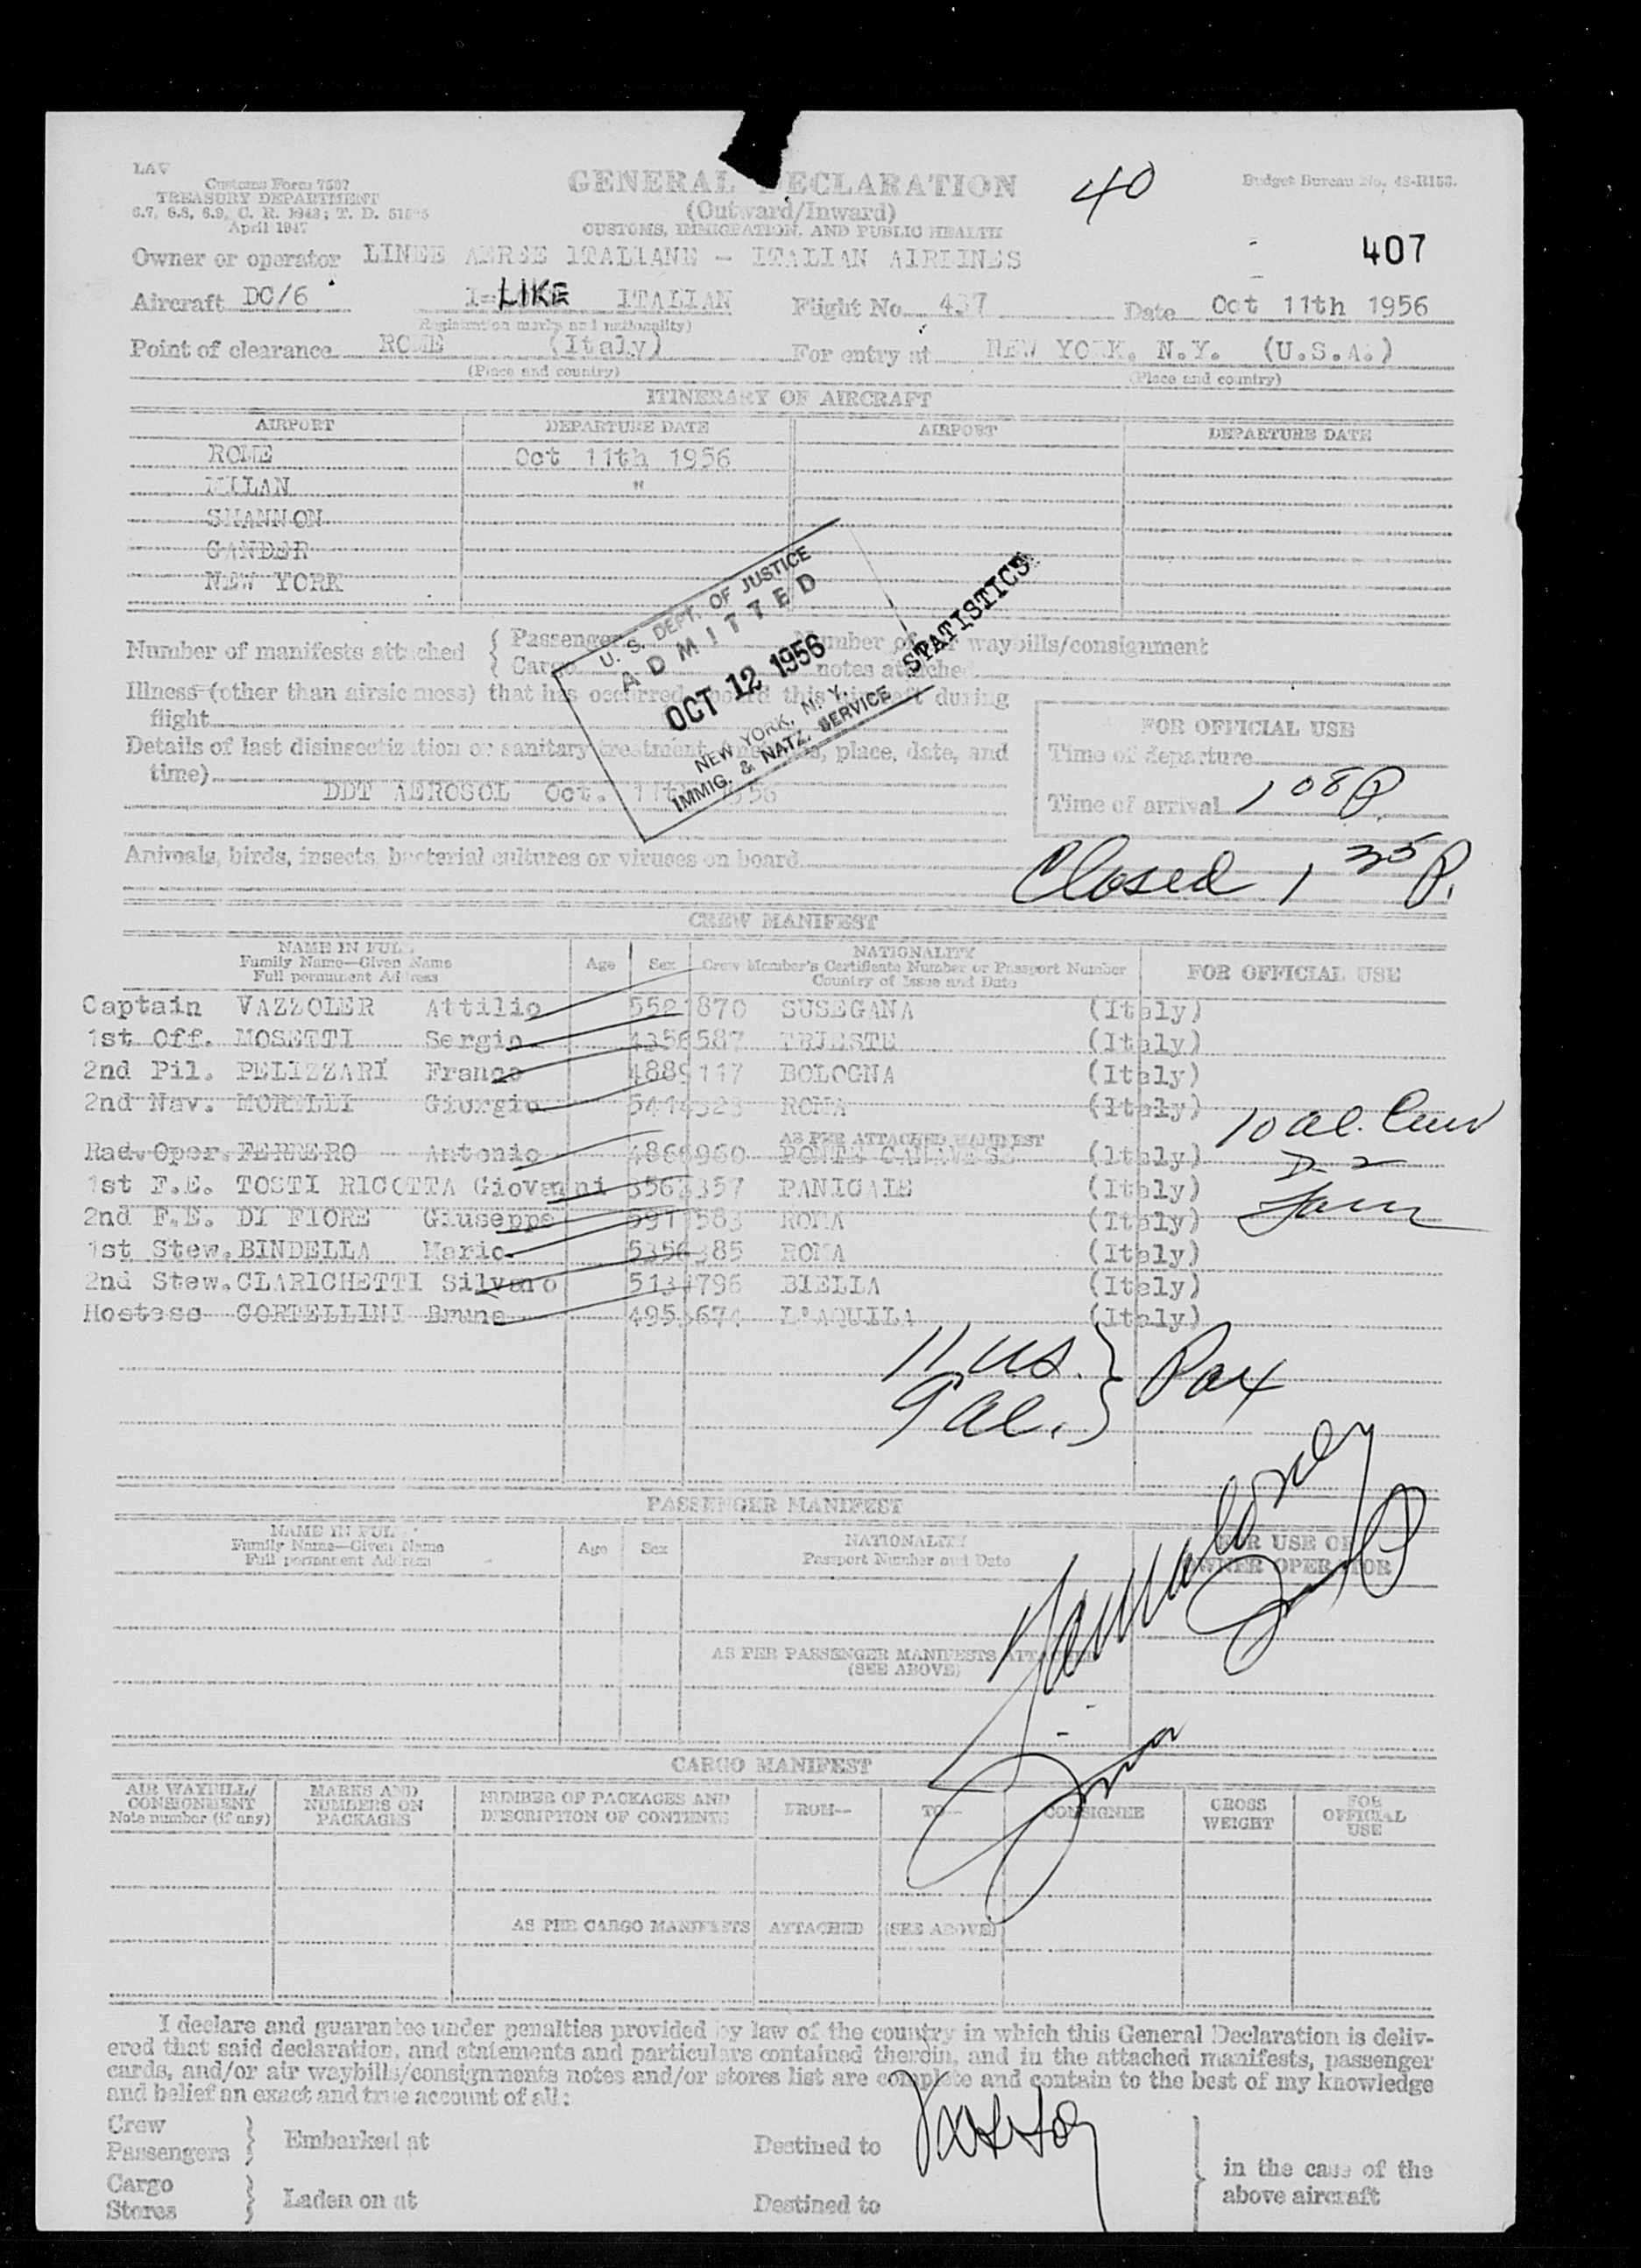 LAV
Customs Form 7507
TREASURY DEPARTMENT
6.7, 6.8, 6.9, C. R. 1943; T. D. 51
April 1947
GENERAL DECLARATION
(Outward/Inward)
CUSTOMS, IMMIGRATION, AND PUBLIC HEALTH
40
Budget Bureau No. 48-R153.
407
Owner or operator LINEE AEREE ITALIANE - ITALIAN AIRLINES
Aircraft DC/6 I-LIKE ITALIAN Flight No. 437 Date Oct 11th 1956
(Registration marks and nationality)
Point of clearance ROME (Italy) For entry at NEW YORK, N.Y. (U.S.A.)
(Place and country) (Place and country)
ITINERARY OF AIRCRAFT
AIRPORT DEPARTURE DATE AIRPORT DEPARTURE DATE
ROME Oct 11th 1956
MILAN "
SHANNON
GANDER
NEW YORK
U. S. DEPT. OF JUSTICE
ADMITTED
OCT 12 1956
NEW YORK, N. Y.
IMMIG. & NATZ. SERVICE
STATISTICS
Number of manifests attached { Passenger Number of air waybills/consignment
{ Cargo notes attached
Illness (other than airsickness) that has occurred aboard this aircraft during
flight
Details of last disinsectization or sanitary treatment place, date, and
time)
DDT AEROSOL Oct. 11th 1956
FOR OFFICIAL USE
Time of departure
Time of arrival 1 08 P.
Animals, birds, insects, bacterial cultures or viruses on board
Closed 1 35 P.
CREW MANIFEST
NAME IN FULL
Family Name—Given Name
Full permanent Address
Age Sex
NATIONALITY
Crew Member's Certificate Number or Passport Number
Country of Issue and Date
FOR OFFICIAL USE
Captain VAZZOLER Attilio 5521870 SUSEGANA (Italy)
1st Off. MOSETTI Sergio 4356587 TRIESTE (Italy)
2nd Pil. PELIZZARI Franco 4889117 BOLOGNA (Italy)
2nd Nav. MORELLI Giorgio ROMA (Italy)
10 al. Crew
AS PER ATTACHED MANIFEST
Rad. Oper. FERRERO Antonio 4868960 PONTE CANAVESE (Italy)
D-2
1st F.E. TOSTI RICOTTA Giovanni PANICALE (Italy)
2nd F.E. DI FIORE Giuseppe ROMA (Italy)
1st Stew. BINDELLA Mario ROMA (Italy)
2nd Stew. CLARICHETTI Silvano BIELLA (Italy)
Hostess CORTELLINI Bruna L'AQUILA (Italy)
11 us. } Pax
9 al. }
PASSENGER MANIFEST
NAME IN FULL
Family Name—Given Name
Full permanent Address
Age Sex
NATIONALITY
Passport Number and Date
FOR USE OF
OWNER OPERATOR
AS PER PASSENGER MANIFESTS ATTACHED
(SEE ABOVE)
CARGO MANIFEST
AIR WAYBILL/
CONSIGNMENT
Note number (if any)
MARKS AND
NUMBERS ON
PACKAGES
NUMBER OF PACKAGES AND
DESCRIPTION OF CONTENTS
FROM—
TO—
CONSIGNEE
GROSS
WEIGHT
FOR
OFFICIAL
USE
AS PER CARGO MANIFESTS ATTACHED (SEE ABOVE)
I declare and guarantee under penalties provided by law of the country in which this General Declaration is deliv-
ered that said declaration, and statements and particulars contained therein, and in the attached manifests, passenger
cards, and/or air waybills/consignments notes and/or stores list are complete and contain to the best of my knowledge
and belief an exact and true account of all:
Crew
Passengers } Embarked at Destined to
in the case of the
Cargo
above aircraft
Stores } Laden on at Destined to